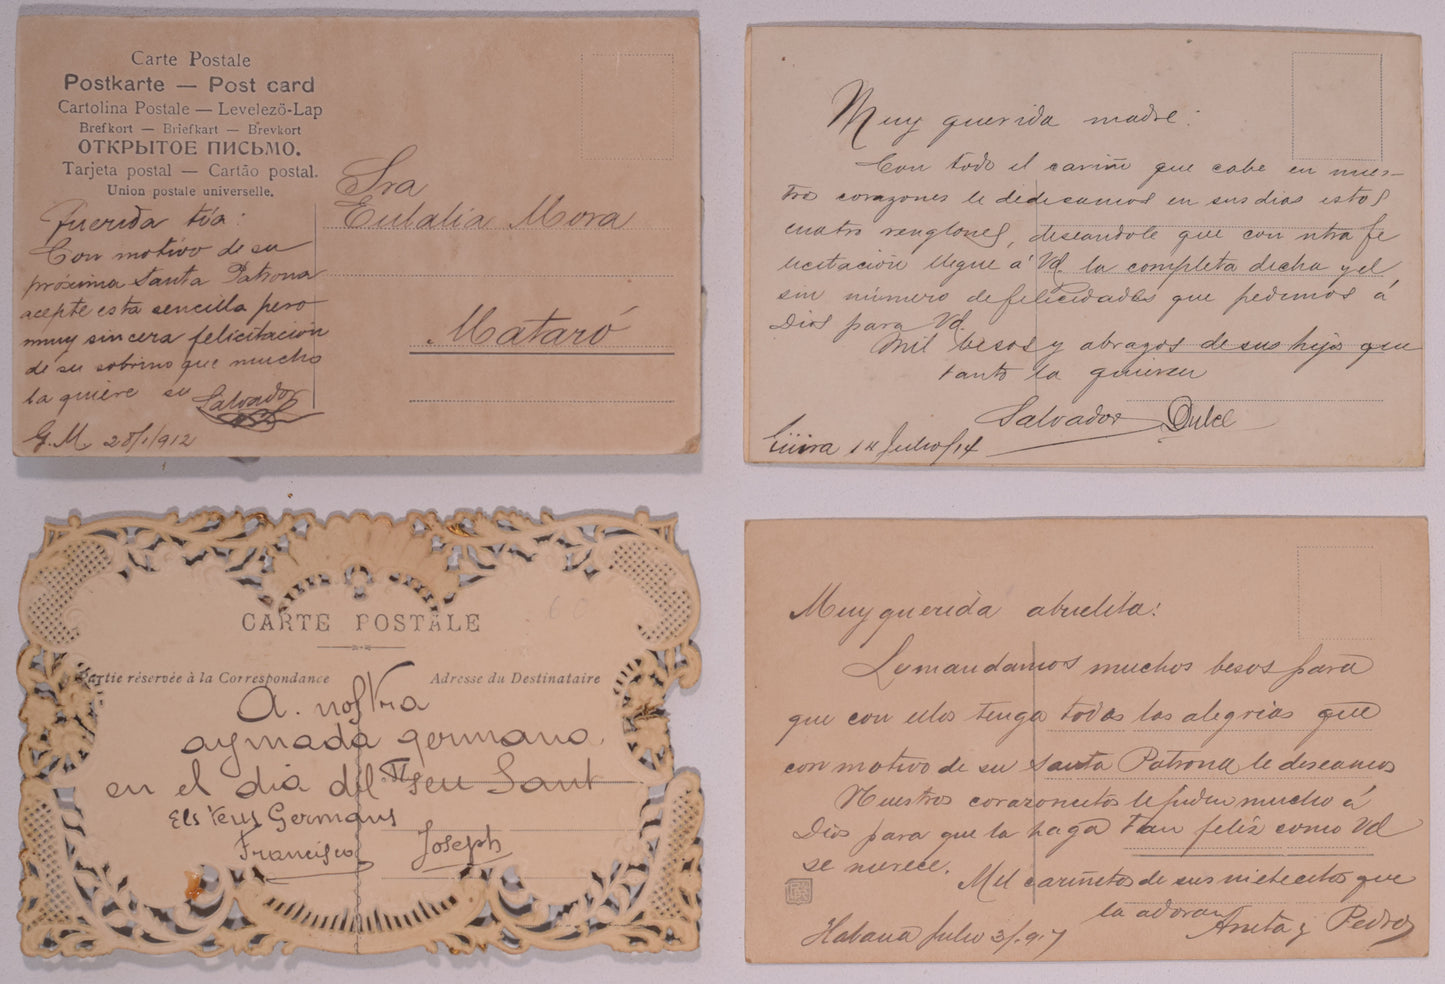 Carte Postale
Postkarte — Post card
Cartolina Postale — Levelezö-Lap
Brefkort — Briefkart — Brevkort
ОТКРЫТОЕ ПИСЬМО.
Tarjeta postal — Cartão postal.
Union postale universelle.
Querida tía:
Con motivo de su
próxima Santa Patrona
acepte esta sencilla pero
muy sincera felicitación
de su sobrino que mucho
la quiere su Salvador
G. M. 28/1/912
Sra
Eulalia Mora
Mataró
Muy querida madre:
Con todo el cariño que cabe en nues-
tro corazones le dedicamos en sus dias estos
cuatro renglones, deseandole que con ntra fe
licitación llegue á Vd. la completa dicha y el
sin número de felicidades que pedimos á
Dios para Vd.
Mil besos y abrazos de sus hijos que
tanto la quieren
Salvador Dulce
Güira 14 Julio/14
CARTE POSTALE
60
Partie réservée à la Correspondance
Adresse du Destinataire
A. nostra
aymada germana.
en el dia del seu Sant
Els teus Germans
Francisco Joseph
Muy querida abuelita:
Le mandamos muchos besos para
que con ellos tenga todas las alegrias que
con motivo de su Santa Patrona le deseamos
Nuestros corazoncitos le piden mucho á
Dios para que la haga tan feliz como Vd
se merece.
Mil cariñitos de sus nietecitos que
la adoran
Anita y Pedro
Habana Julio 3/917